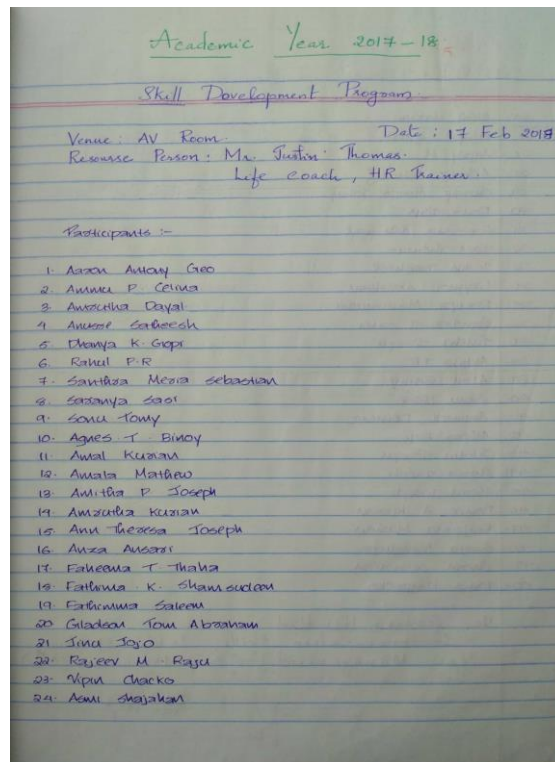 Academic Year 2017-18
Skill Development Program
Venue: AV Room. Date: 17 Feb 2018
Resourse Person: Mr. Justin Thomas.
Life coach, HR Trainer.
Participants :-
1. Aaron Antony Geo
2. Ammu P. Celina
3. Amrutha Dayal
4 Satheesh
5. Dhanya K. Gopi
6. Rahul P.R
7. Santhra Meria Sebastian
8. Saranya Sasi
9. Sonu Tomy
10. Agnes T. Binoy
11. Amal Kurian
12. Amala Mathew
13. Amitha P Joseph
14. Amrutha Kurian
15. Ann Theresa Joseph
16. Anza Ansari
17. Faheema T Thaha
18. Fathima K. Shamsudeen
19. Fathimma Saleem
20 Gladson Tom Abraham
21 Jinu Jojo
22. Rajeev M Raju
23. Vipin Chacko
24. Shajahan